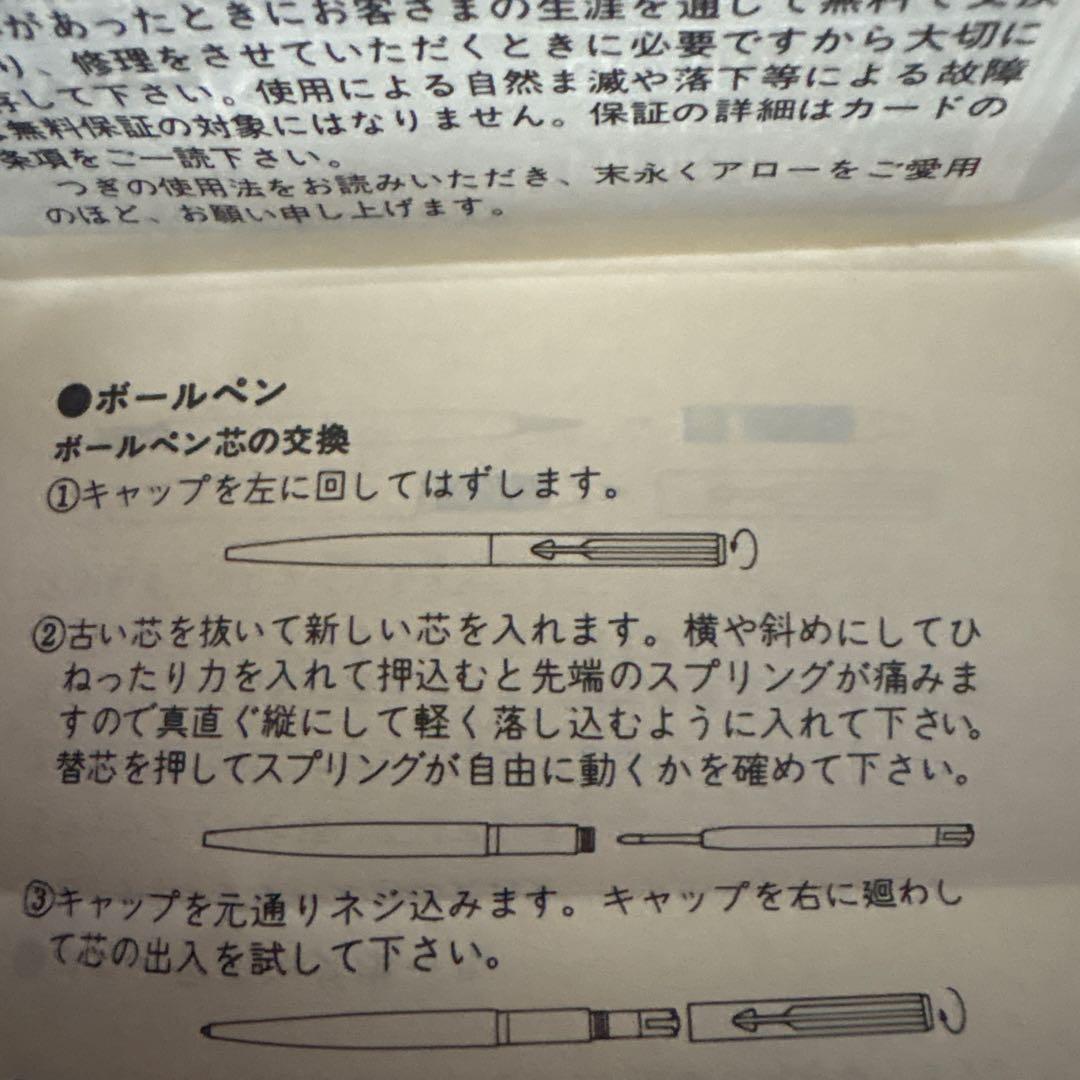 があったときにお客さまの生涯を通して無料で交換
り、修理をさせていただくときに必要ですから大切に
して下さい。使用による自然ま滅や落下等による故障
無料保証の対象にはなりません。保証の詳細はカードの
条項をご一読下さい。
つぎの使用法をお読みいただき、末永くアローをご愛用
のほど、お願い申し上げます。
●ボールペン
ボールペン芯の交換
①キャップを左に回してはずします。
②古い芯を抜いて新しい芯を入れます。横や斜めにしてひ
ねったり力を入れて押込むと先端のスプリングが痛みま
すので真直ぐ縦にして軽く落し込むように入れて下さい。
替芯を押してスプリングが自由に動くかを確めて下さい。
③キャップを元通りネジ込みます。キャップを右に廻わし
て芯の出入を試して下さい。